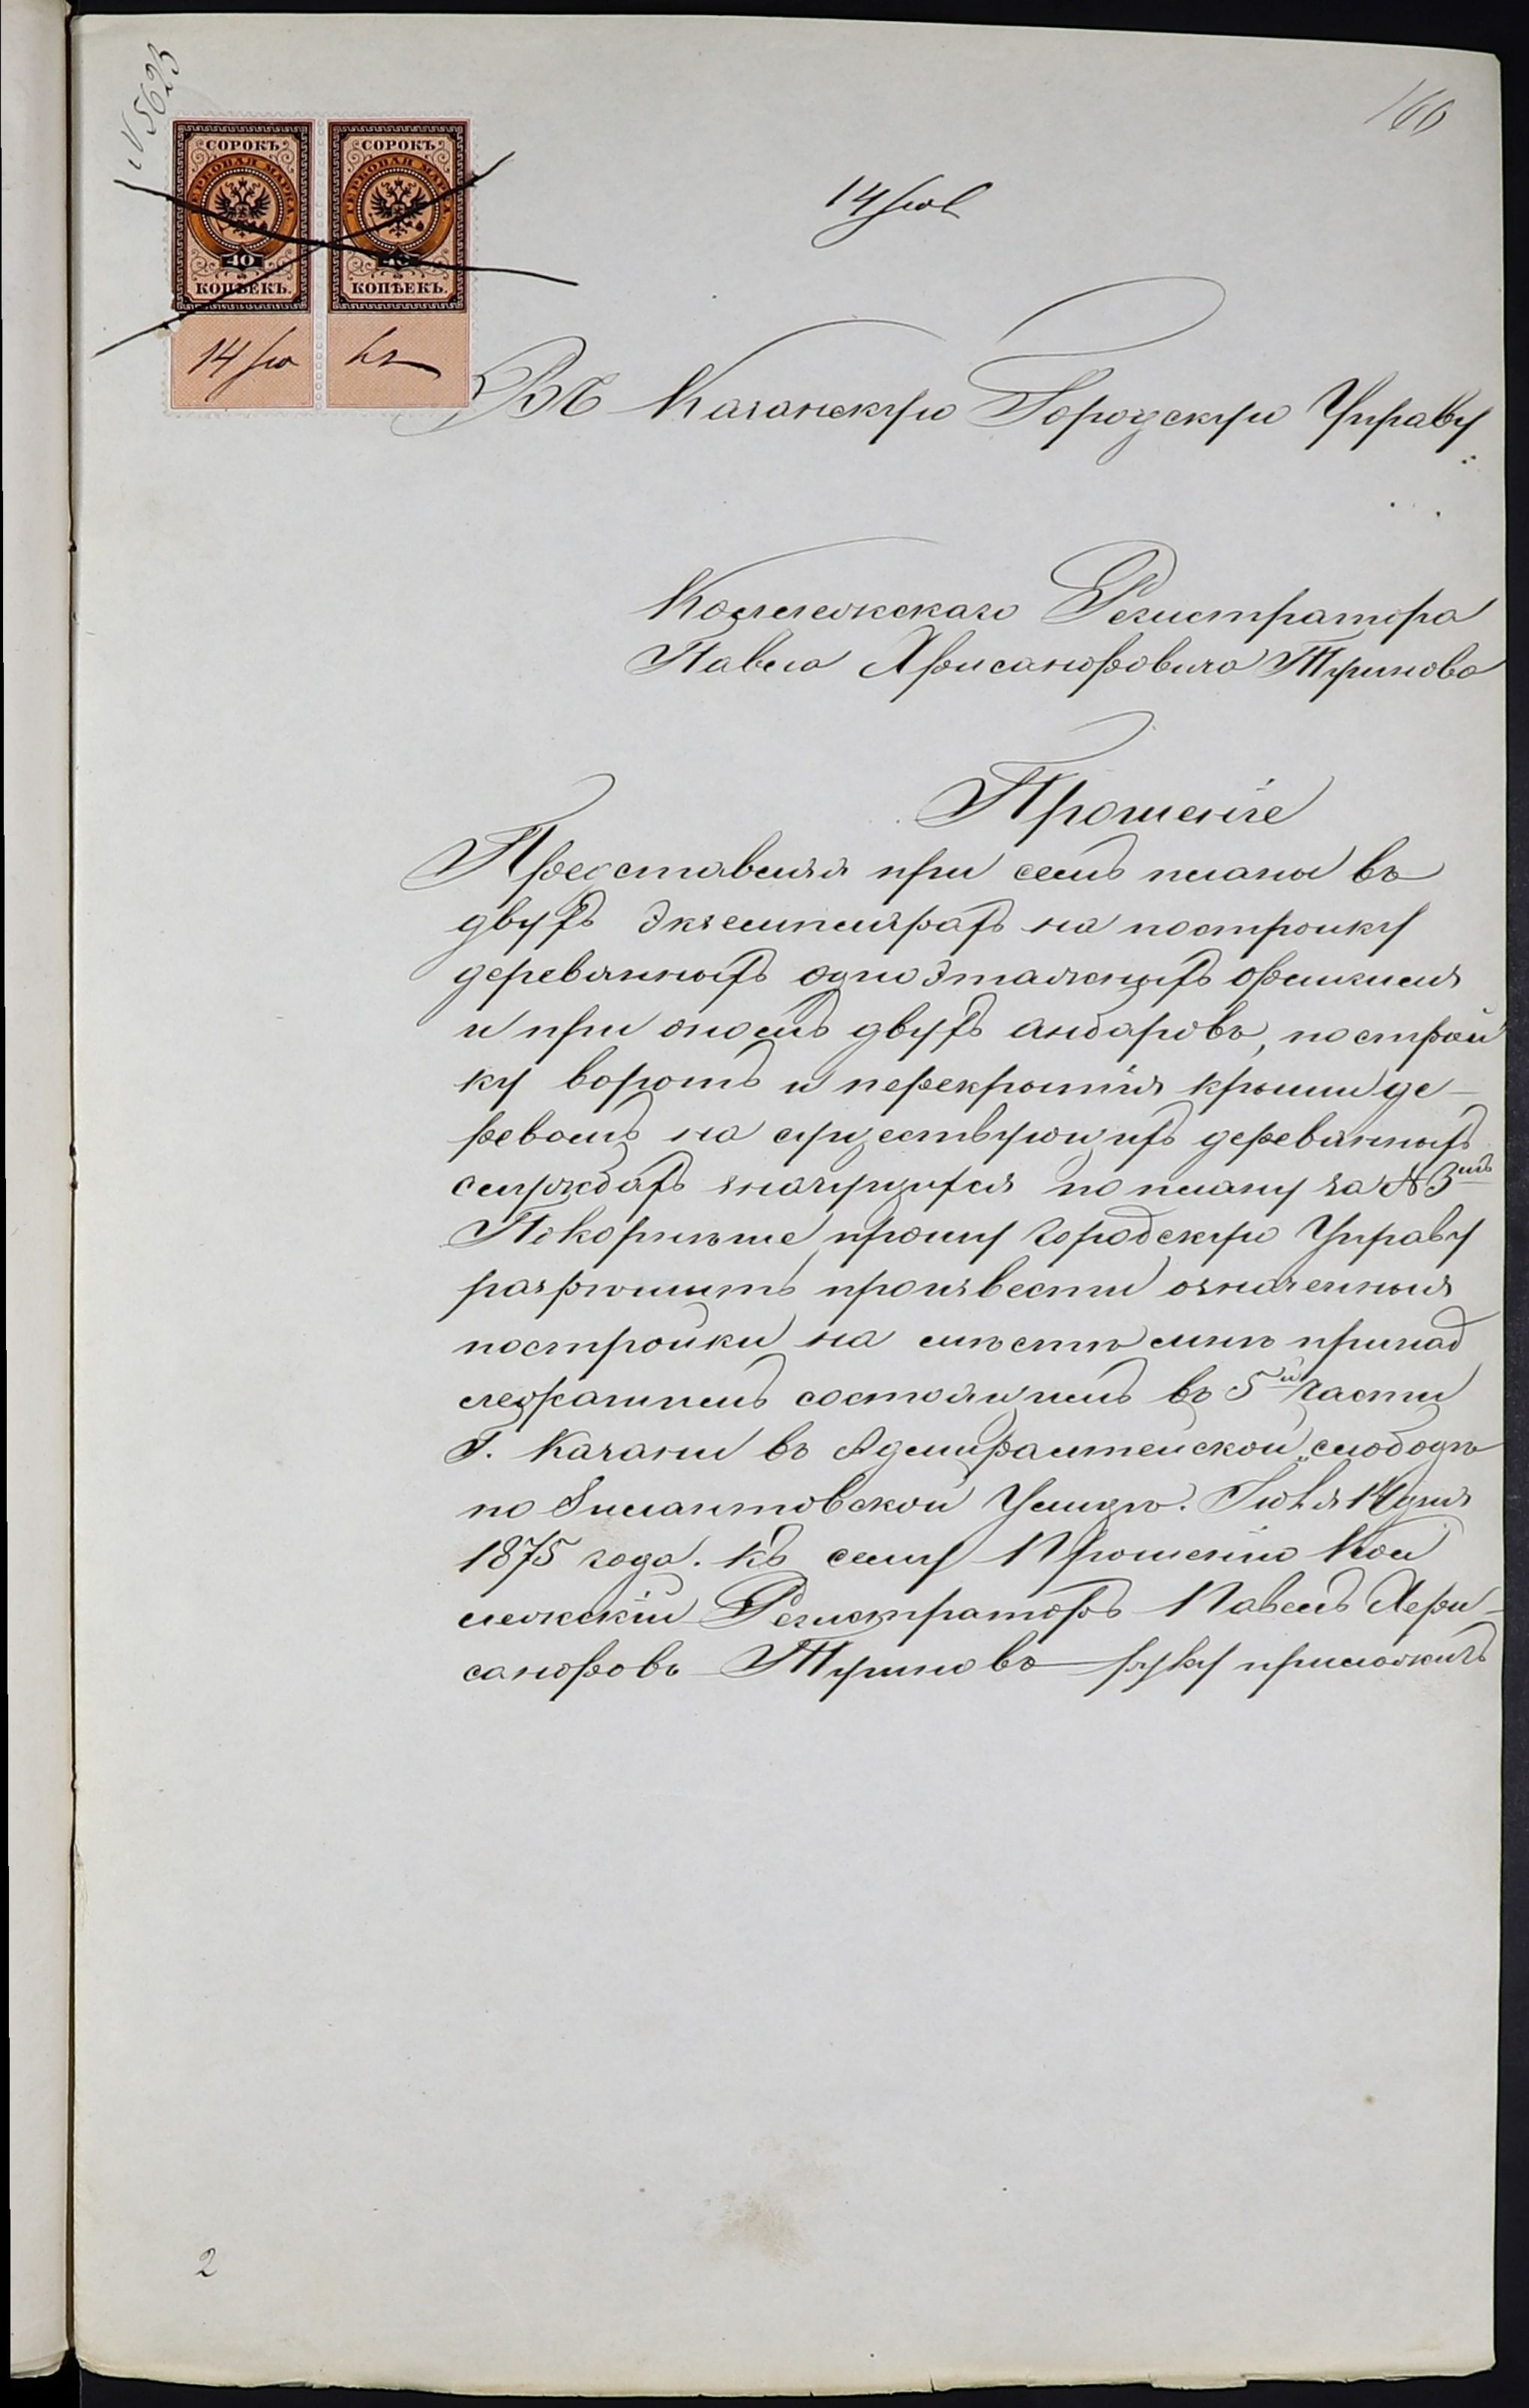 N 5623
166
СОРОКЪ СОРОКЪ
ГЕРБОВАЯ МАРКА ГЕРБОВАЯ МАРКА
40
КОПѢЕКЪ. КОПѢЕКЪ.
14 Іюл
14 Ію ля
Въ Казанскую Городскую Управу
Коллежскаго Регистратора
Павла Хрисанфовича Туринова
Прошеніе
Представляя при семъ планы въ
двухъ экземплярахъ на постройку
деревянныхъ одноэтажныхъ флигеля
и при ономъ двухъ анбаровъ, построй
ку воротъ и перекрытія крыши де-
ревомъ на существующихъ деревянныхъ
службахъ значущихся по плану за № 3мъ
Покорнѣше прошу городскую Управу
разрѣшить произвести означенныя
постройки на мѣстѣ мнѣ принад
лежащемъ состоящемъ въ 5й части
Г. Казани въ Адмиралтейской слободѣ
по Зилантовской Улицѣ. Іюля 14 дня
1875 года. Къ сему Прошенію Кол
лежскій Регистраторъ Павелъ Хери-
санфовъ Туриновъ руку приложилъ
2